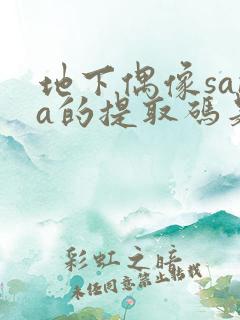 地下偶像sa
a的提取码
彩虹之暗
未经同意禁止转载